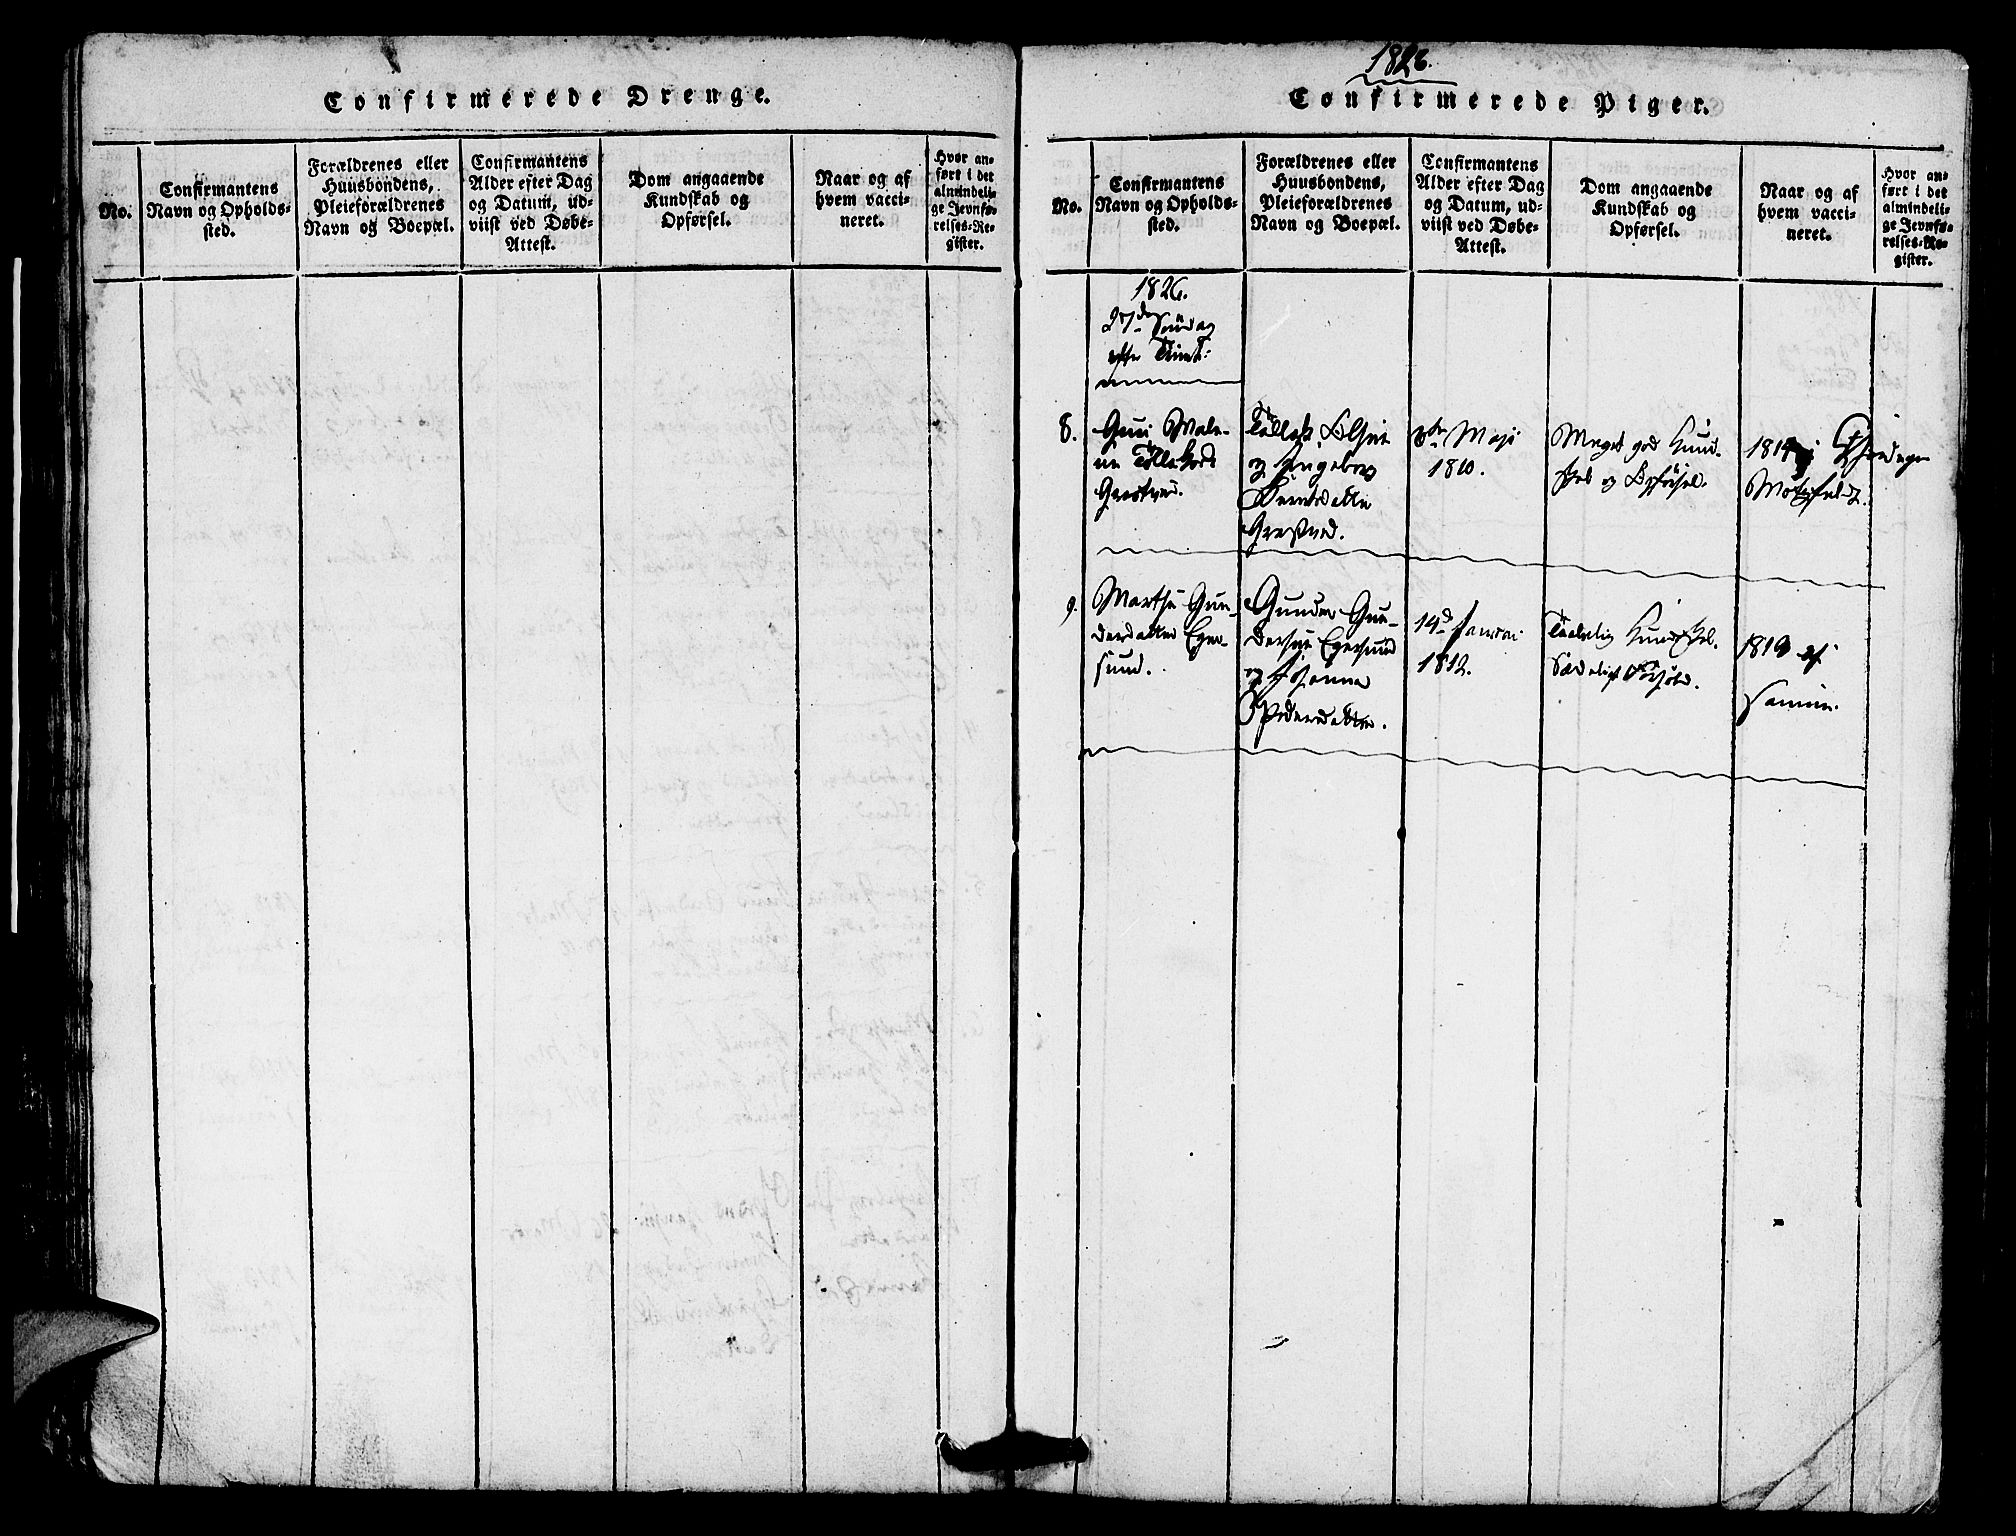 Confirmerede Drenge.
No.
Confirmantens
Navn og Opholds-
sted.
Forældrenes eller
Huusbondens,
Pleieforældrenes
Navn og Boepæl.
Confirmantens
Alder efter Dag
og Datum, ud-
viist ved Døbe-
Attest.
Dom angaaende
Kundskab og
Opførsel.
Naar og af
hvem vacci-
neret.
Hvor an-
ført i det
almindeli-
ge Jevnfø-
relses-Re-
gister.
1826.
Confirmerede Piger.
No.
Confirmantens
Navn og Opholds-
sted.
Forældrenes eller
Huusbondens,
Pleieforældrenes
Navn og Boepæl.
Confirmantens
Alder efter Dag
og Datum, ud-
viist ved Døbe-
Attest.
Dom angaaende
Kundskab og
Opførsel.
Naar og af
hvem vacci-
neret.
Hvor an-
ført i det
almindeli-
ge Jevnfø-
relses-Re-
gister.
1826.
Søndag
efter Trinit:
8.
Guri Male-
ne
Tollak Olsen
og Ingeborg
Berntsdatter
Maji
1810.
Meget god Kund-
skab og Opførsel.
9.
Marthe Gun-
dersdatter Eger-
sund.
Gunder Gun-
dersen Egersund
og Johanna
Pedersdatter.
14d Januar
1812.
Taalelig Kundskab.
Sædeligt Forhold.
1819 af
Samme.